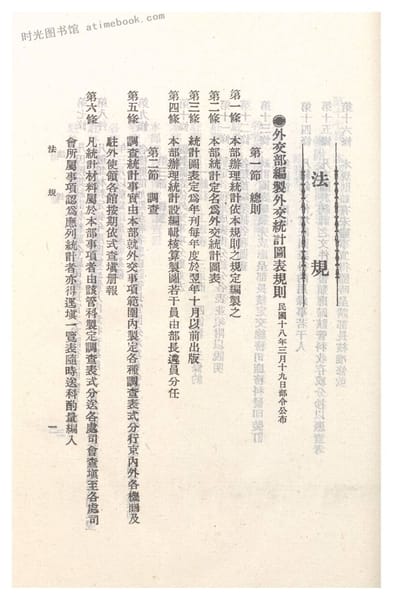 时光图书馆 - atimebook.com
法規
●外交部編製外交統計圖表規則 民國十八年三月十九日部令公布
第一節 總則
第一條 本部辦理統計依本規則之規定編製之
第二條 本部統計定名爲外交統計圖表
第三條 統計圖表定爲年刊每年度於翌年十月以前出版
第四條 本部辦理統計設編輯核算製圖若干員由部長遴員分任
第二節 調查
第五條 調查統計事實由本部就外交事項範圍內製定各種調查表式分行京內外各機關及
駐外使領各館按期依式查塡册報
第六條 凡統計材料屬於本部事項者由該管科製定調查表式分送各處司會查塡至各處司
會所屬事項認爲應列統計者亦得逕塡一覽表隨時送科酌量編入
法規
一